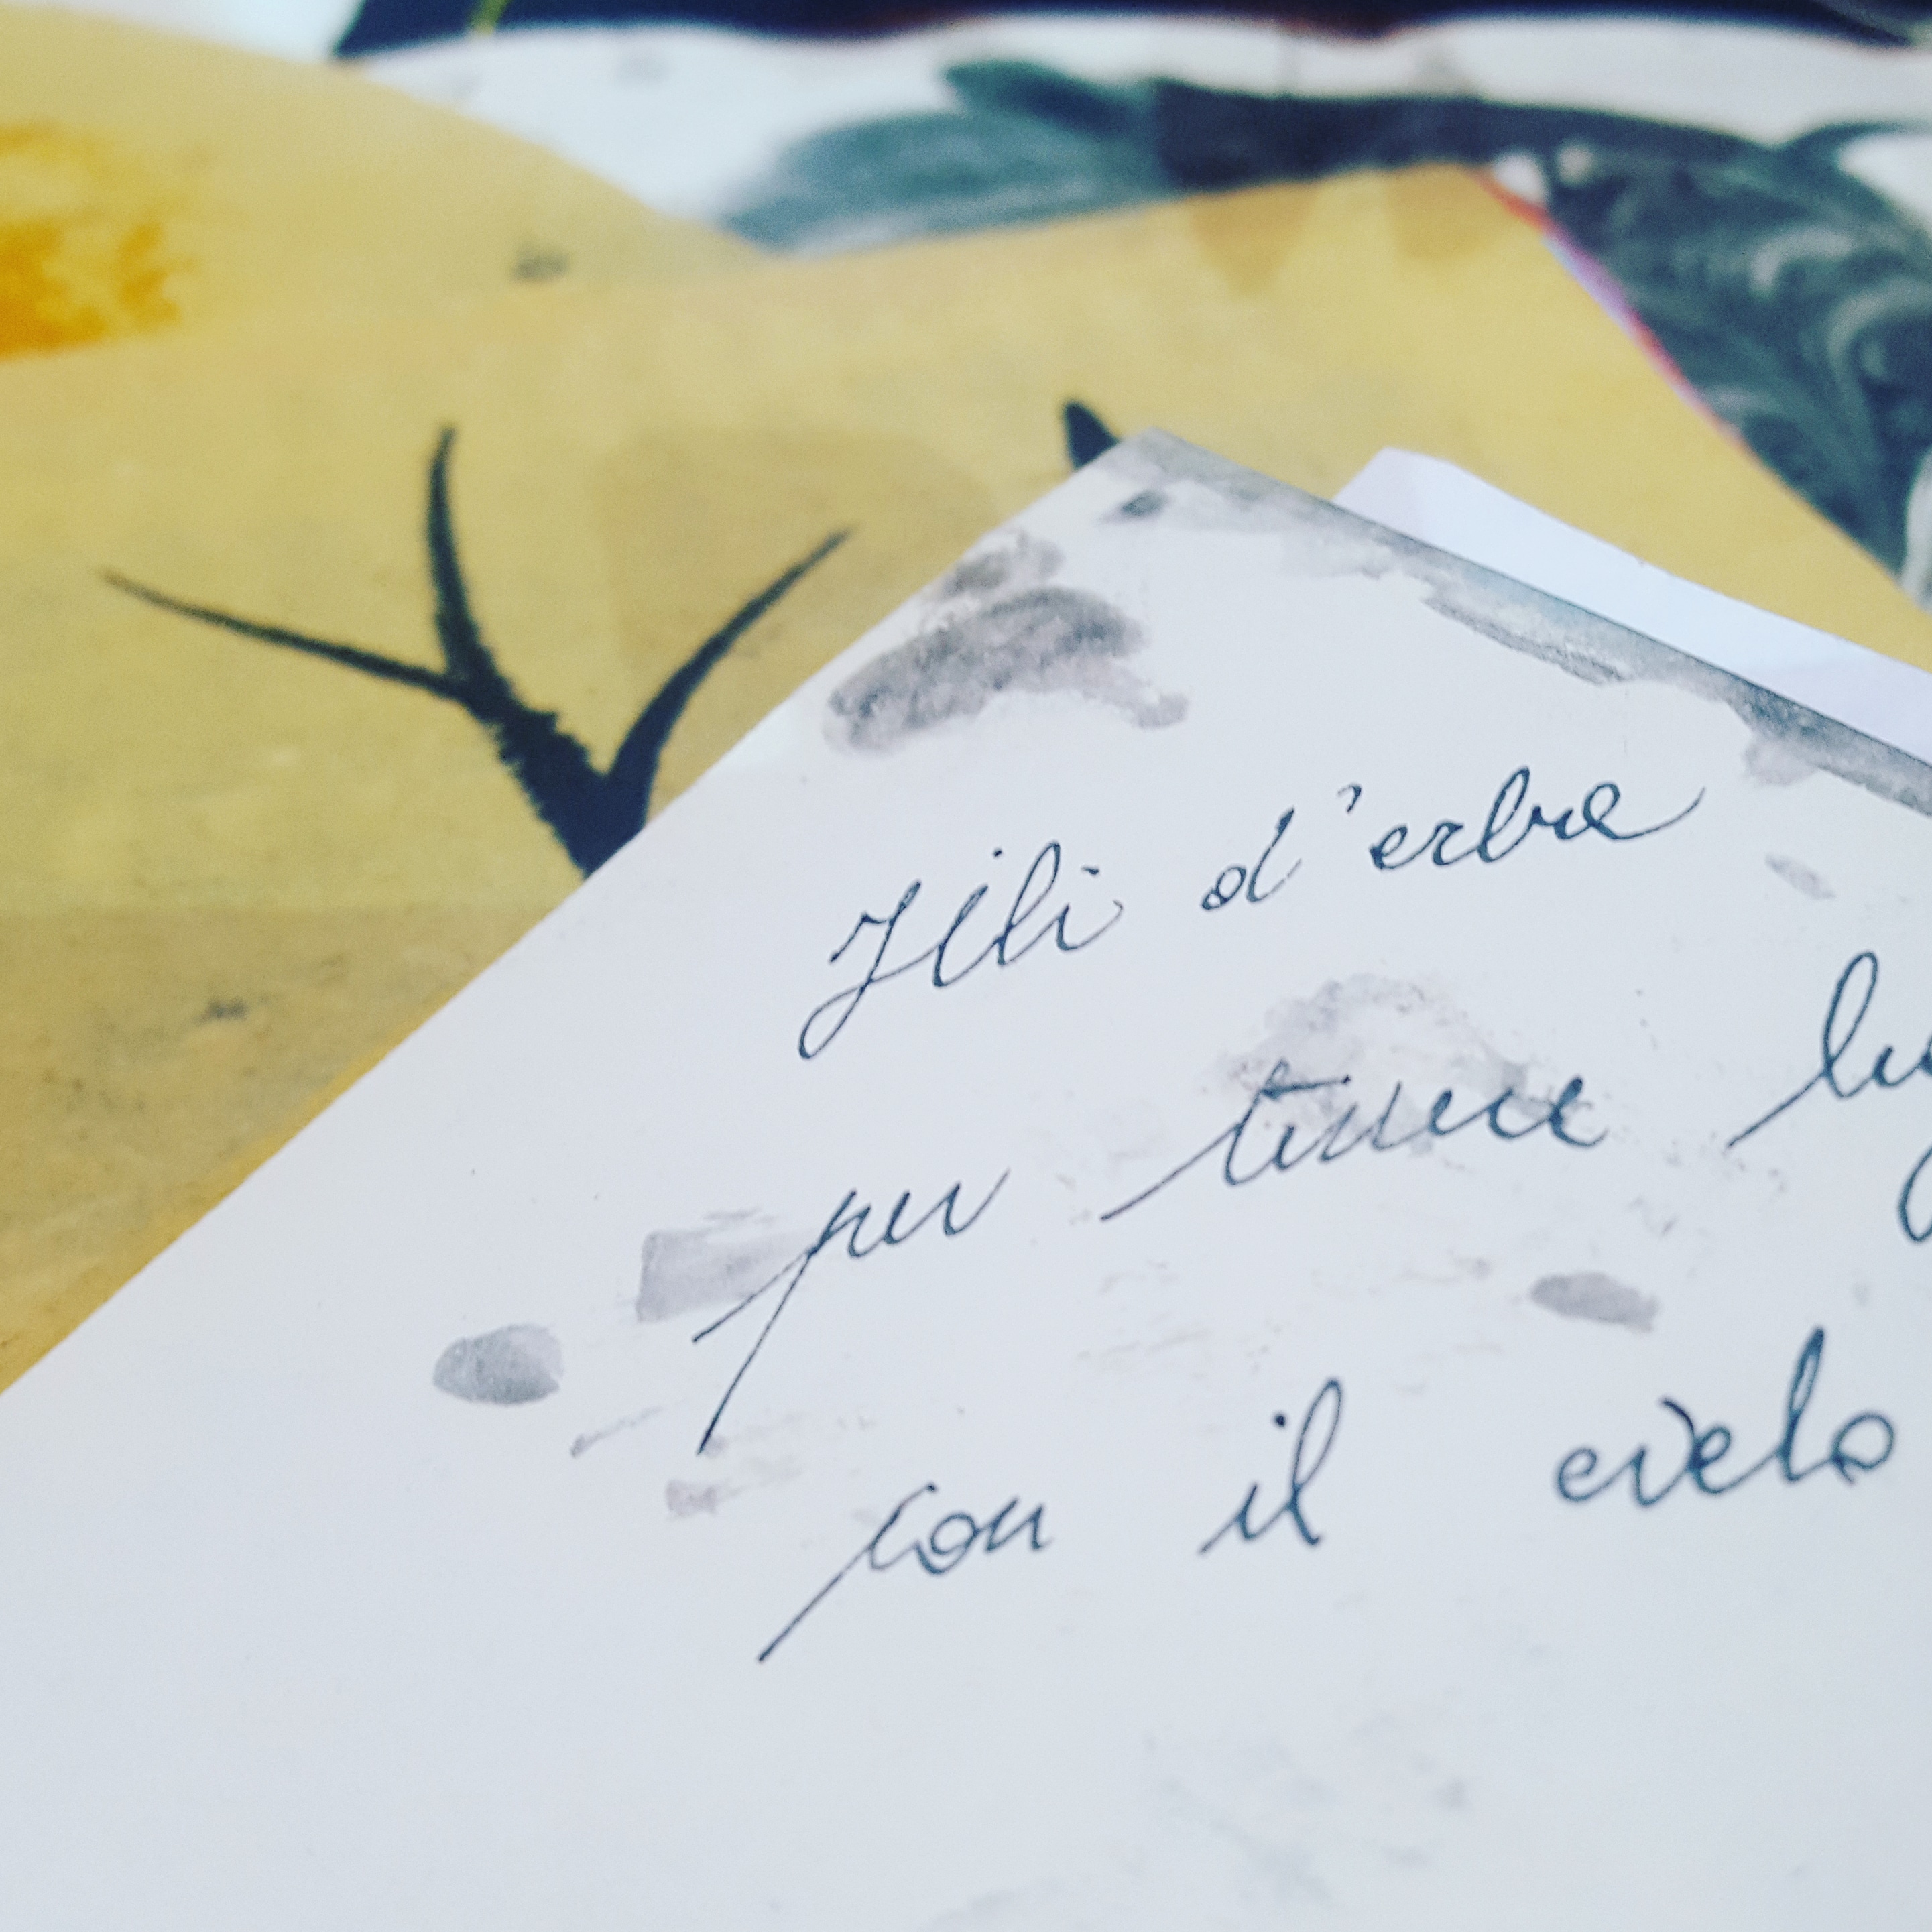 Fili d'erba
per tenere
con il cielo